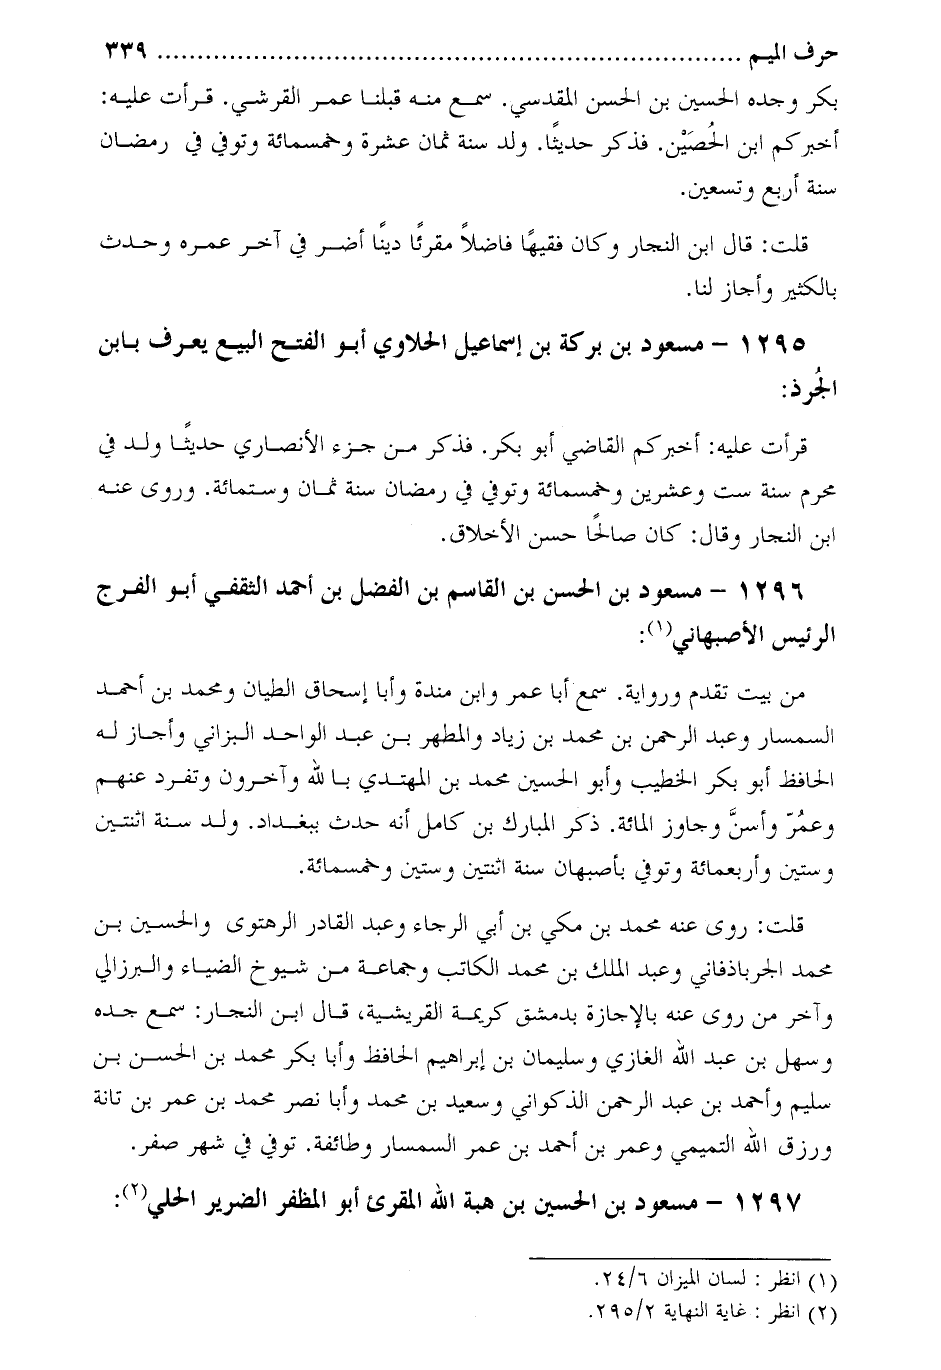 حرف الميـم ........................................................................ ٣٣٩
بكر وجده الحسين بن الحسن المقدسي. سمـع منـه قبلنـا عمـر القرشي. قـرأت عليـه:
أخبركم ابن الحُصَيْن. فذكر حديثًا. ولد سنة ثمان عشرة وخمسمائة وتوفي في رمضـان
سنة أربع وتسعين.
قلت: قال ابن النجار وكان فقيهًا فاضلاً مقرئًا دينًا أضـر في آخـر عمـره وحـدث
بالكثير وأجاز لنا.
١٢٩٥ – مسعود بن بركة بن إسماعيل الحلاوي أبـو الفتـح البيـع يعـرف بـابن
الجُرذ:
قرأت عليه: أخبركم القاضي أبو بكر. فذكر مـن جـزء الأنصـاري حديثًـا ولـد في
محرم سنة ست وعشرين وخمسمائة وتوفي في رمضان سنة ثمـان وسـتمائة. وروى عنـه
ابن النجار وقال: كان صالحًا حسن الأخلاق.
١٢٩٦ – مسعود بن الحسن بن القاسم بن الفضل بن أحمد الثقفـي أبـو الفـرج
الرئيس الأصبهاني(١):
من بيت تقدم ورواية. سمع أبا عمر وابن مندة وأبا إسحاق الطيان ومحمد بن أحمـد
السمسار وعبد الرحمن بن محمد بن زياد والمطهر بـن عبـد الواحـد الـبزاني وأجـاز لـه
الحافظ أبو بكر الخطيب وأبو الحسين محمد بن المهتدي بـا لله وآخـرون وتفـرد عنهـم
وعمُرّ وأسنَّ وجاوز المائة. ذكر المبارك بن كامل أنه حدث ببغـداد. ولـد سـنة اثنتـين
وستين وأربعمائة وتوفي بأصبهان سنة اثنتين وستين وخمسمائة.
قلت: روى عنه محمد بن مكي بن أبي الرجاء وعبد القادر الرهتوى والحسـين بـن
محمد الجرباذفاني وعبد الملك بن محمد الكاتب وجماعـة مـن شـيوخ الضيـاء والـبرزالي
وآخر من روى عنه بالإجازة بدمشق كريمـة القريشية، قـال ابـن النجـار: سمـع جـده
وسهل بن عبد الله الغازي وسليمان بن إبراهيم الحافظ وأبـا بكر محمـد بن الحسـن بـن
سليم وأحمـد بن عبد الرحمن الذكواني وسعيد بن محمـد وأبـا نصر محمـد بن عمر بن تانة
ورزق الله التميمي وعمر بن أحمد بن عمر السمسار وطائفة. توفي في شهر صفر.
١٢٩٧ – مسعود بن الحسين بن هبة الله المقرئ أبو المظفر الضرير الحلي(٢):
(١) انظر : لسان الميزان ٢٤/٦.
(٢) انظر : غاية النهاية ٢٩٥/٢.